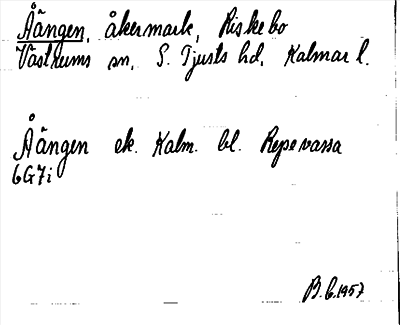 Åängen, åkermark, Riskebo
Västrums sn, S. Tjusts hd, Kalmar l.
Åängen ek. Kalm. bl. Repevassa
6G7i
B.C. 1957